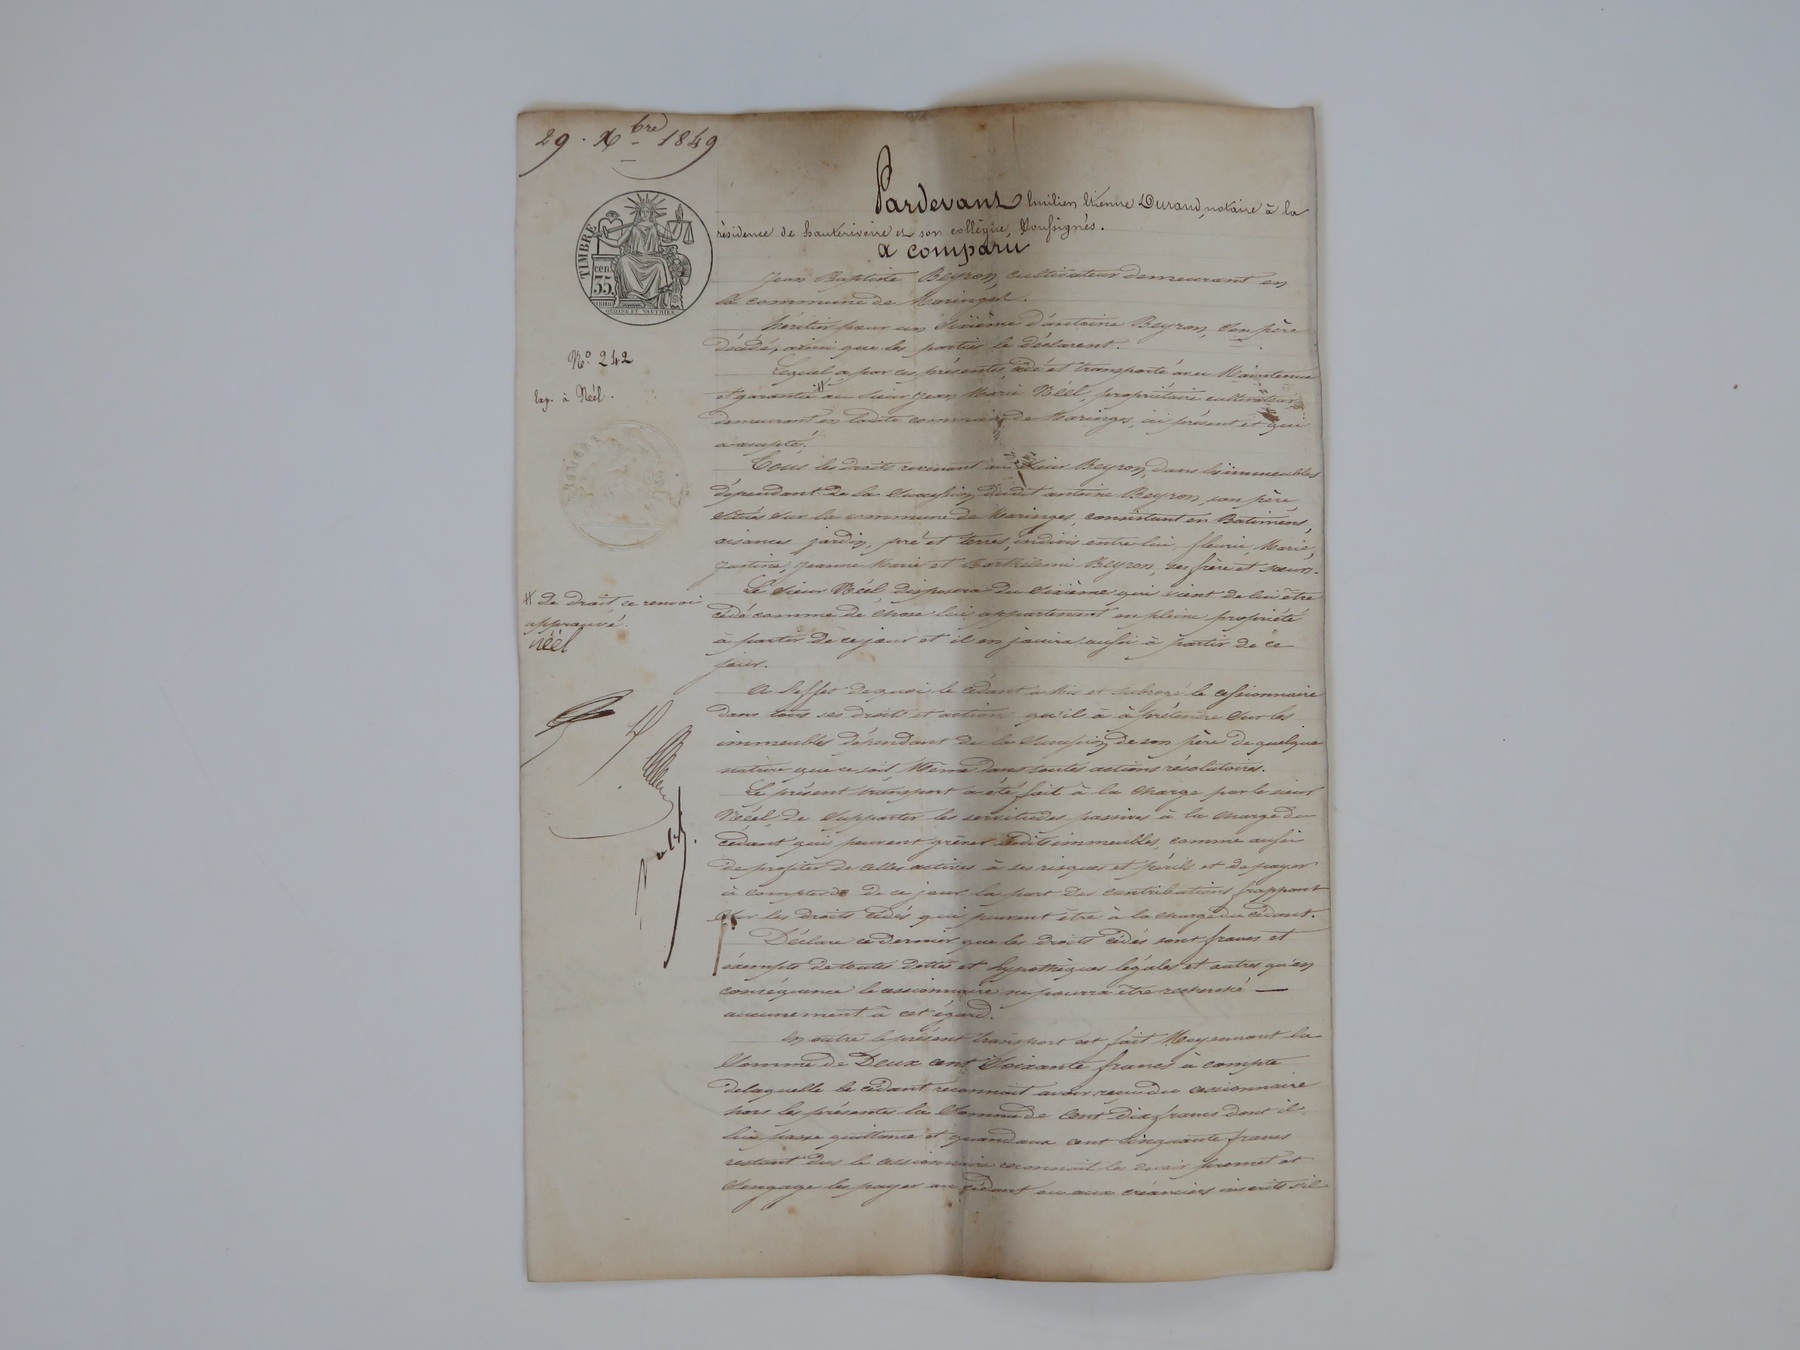 29 · Xbre 1849
TIMBRE
cent.
35
N.o 242
Exp. à Néel.
Pardevant Emilien Etienne Durand, notaire à la
résidence de hauterivoire et son collègue, Soussignés.
a comparu
Jean Baptiste Beyron, cultivateur demeurant en
la commune de Maringes.
héritier pour un Sixième d'antoine Beyron, Son père
décédé, ainsi que les parties le déclarent.
Lequel a par ces présentes, cédé et transporté avec Maintenue
et garantie # au Sieur Jean Marie Néel, propriétaire cultivateur
demeurant en ladite commune de Maringes, ici présent et qui
a accepté.
Tous les droits revenant au Sieur Beyron, dans les immeubles
dépendant de la Succession dudit antoine Beyron, son père
Situés Sur la commune de Maringes, consistant en Batimens,
aisances jardin, pré et terres, indivis entre lui, fleurie, Marie,
justine, jeanne Marie et Barthélemi Beyron, ses frère et sœurs.
Le Sieur Néel disposera du Sixième qui vient de lui être
cédé comme de chose lui appartenant en pleine propriété
à partir de ce jour et il en jouira aussi à partir de ce
jour.
# de droit ce renvoi
approuvé.
Néel
A l'effet de quoi le cédant a Mis et subrogé le cessionnaire
dans tous ses droits et action qu'il a à prétendre Sur les
immeubles dépendant de la Succession de son père de quelque
nature que ce soit Même dans toutes actions résolutoires.
Le présent transport a été fait à la charge par le sieur
Néel de Supporter les servitudes passives à la charge du
cédant qui peuvent gréver lesdits immeubles, comme aussi
de profiter de celles actives à ses risques et périls et de payer
à compter de ce jour la part des contributions frappant
Sur les droits cédés qui peuvent être à la charge du cédant.
Déclare ce dernier que les droits cédés sont francs et
exempts de toutes dettes et hypothèques légales et autres qu'en
conséquence le cessionnaire ne pourra être recherché —
aucunement à cet égard.
En outre le présent transport est fait Moyennant la
Somme de Deux cent Soixante francs à compte
de laquelle le cédant reconnait avoir reçu du cessionnaire
hors les présentes la Somme de Cent Dix francs dont il
lui passe quittance et quand aux cent cinquante francs
restant dus le cessionnaire reconnait les devoir promet et
S'engage les payer au cédant ou aux créanciers inscrits s'il